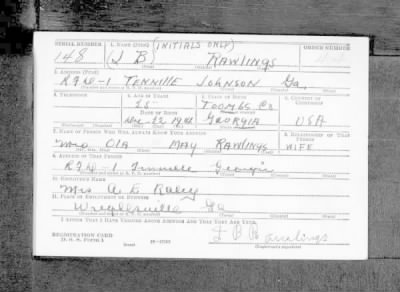 SERIAL NUMBER 1. NAME (Print) (INITIALS ONLY) ORDER NUMBER
148 (J B) RAWLINGS
2. ADDRESS (Print)
RFD-1 TENNILLE JOHNSON Ga.
3. TELEPHONE 4. AGE IN YEARS 5. PLACE OF BIRTH 6. COUNTRY OF CITIZENSHIP
TOOMBS Co
DATE OF BIRTH
Dec 22 GEORGIA USA
7. NAME OF PERSON WHO WILL ALWAYS KNOW YOUR ADDRESS 8. RELATIONSHIP OF THAT PERSON
Mrs OLA MAY RAWLINGS WIFE
9. ADDRESS OF THAT PERSON
RFD-1 Tennille Georgia
10. EMPLOYER'S NAME
Mrs A. L. Raley
11. PLACE OF EMPLOYMENT OR BUSINESS
Wrightsville Ga
I AFFIRM THAT I HAVE VERIFIED ABOVE ANSWERS AND THAT THEY ARE TRUE.
REGISTRATION CARD
D. S. S. FORM 1 (over) 16-17105
J B Rawlings
(Registrant's signature)